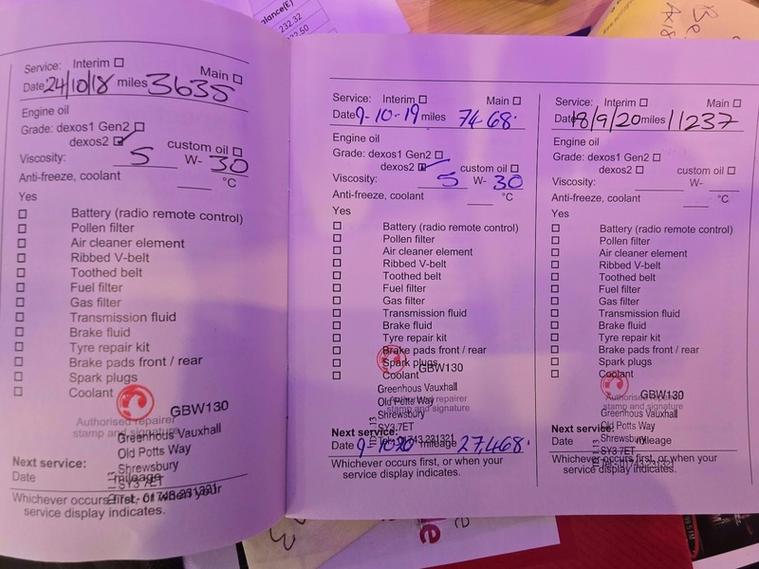 alance(£)
232.32
Service: Interim ☐ Main ☐
Date 24/10/18 miles 3635
Engine oil
Grade: dexos1 Gen2 ☐
dexos2 ☑ custom oil ☐
Viscosity: 5 W- 30
Anti-freeze, coolant ____ °C
Yes
☐ Battery (radio remote control)
☐ Pollen filter
☐ Air cleaner element
☐ Ribbed V-belt
☐ Toothed belt
☐ Fuel filter
☐ Gas filter
☐ Transmission fluid
☐ Brake fluid
☐ Tyre repair kit
☐ Brake pads front / rear
☐ Spark plugs
☐ Coolant
GBW130
Authorised repairer
stamp and signature
Greenhous Vauxhall
Old Potts Way
Shrewsbury
SY3 7ET
Next service:
Date mileage
Whichever occurs first, or when your
service display indicates.
Service: Interim ☐ Main ☐
Date 9-10-19 miles 74-68.
Engine oil
Grade: dexos1 Gen2 ☐
dexos2 ☑ custom oil ☐
Viscosity: 5 W- 30
Anti-freeze, coolant ____ °C
Yes
☐ Battery (radio remote control)
☐ Pollen filter
☐ Air cleaner element
☐ Ribbed V-belt
☐ Toothed belt
☐ Fuel filter
☐ Gas filter
☐ Transmission fluid
☐ Brake fluid
☐ Tyre repair kit
☐ Brake pads front / rear
☐ Spark plugs
☐ Coolant
GBW130
Greenhous Vauxhall
Old Potts Way
Authorised repairer
stamp and signature
Shrewsbury
SY3 7ET
Tel: 01743 231321
Next service:
Date 9-10-20 mileage 27,468.
Whichever occurs first, or when your
service display indicates.
Service: Interim ☐ Main ☐
Date 18/9/20 miles 11237
Engine oil
Grade: dexos1 Gen2 ☐
dexos2 ☐ custom oil ☐
Viscosity: ____ W- ____
Anti-freeze, coolant ____ °C
Yes
☐ Battery (radio remote control)
☐ Pollen filter
☐ Air cleaner element
☐ Ribbed V-belt
☐ Toothed belt
☐ Fuel filter
☐ Gas filter
☐ Transmission fluid
☐ Brake fluid
☐ Tyre repair kit
☐ Brake pads front / rear
☐ Spark plugs
☐ Coolant
GBW130
Authorised repairer
stamp and signature
Greenhous Vauxhall
Old Potts Way
Shrewsbury
SY3 7ET
Tel: 01743 231321
Next service:
Date mileage
Whichever occurs first, or when your
service display indicates.